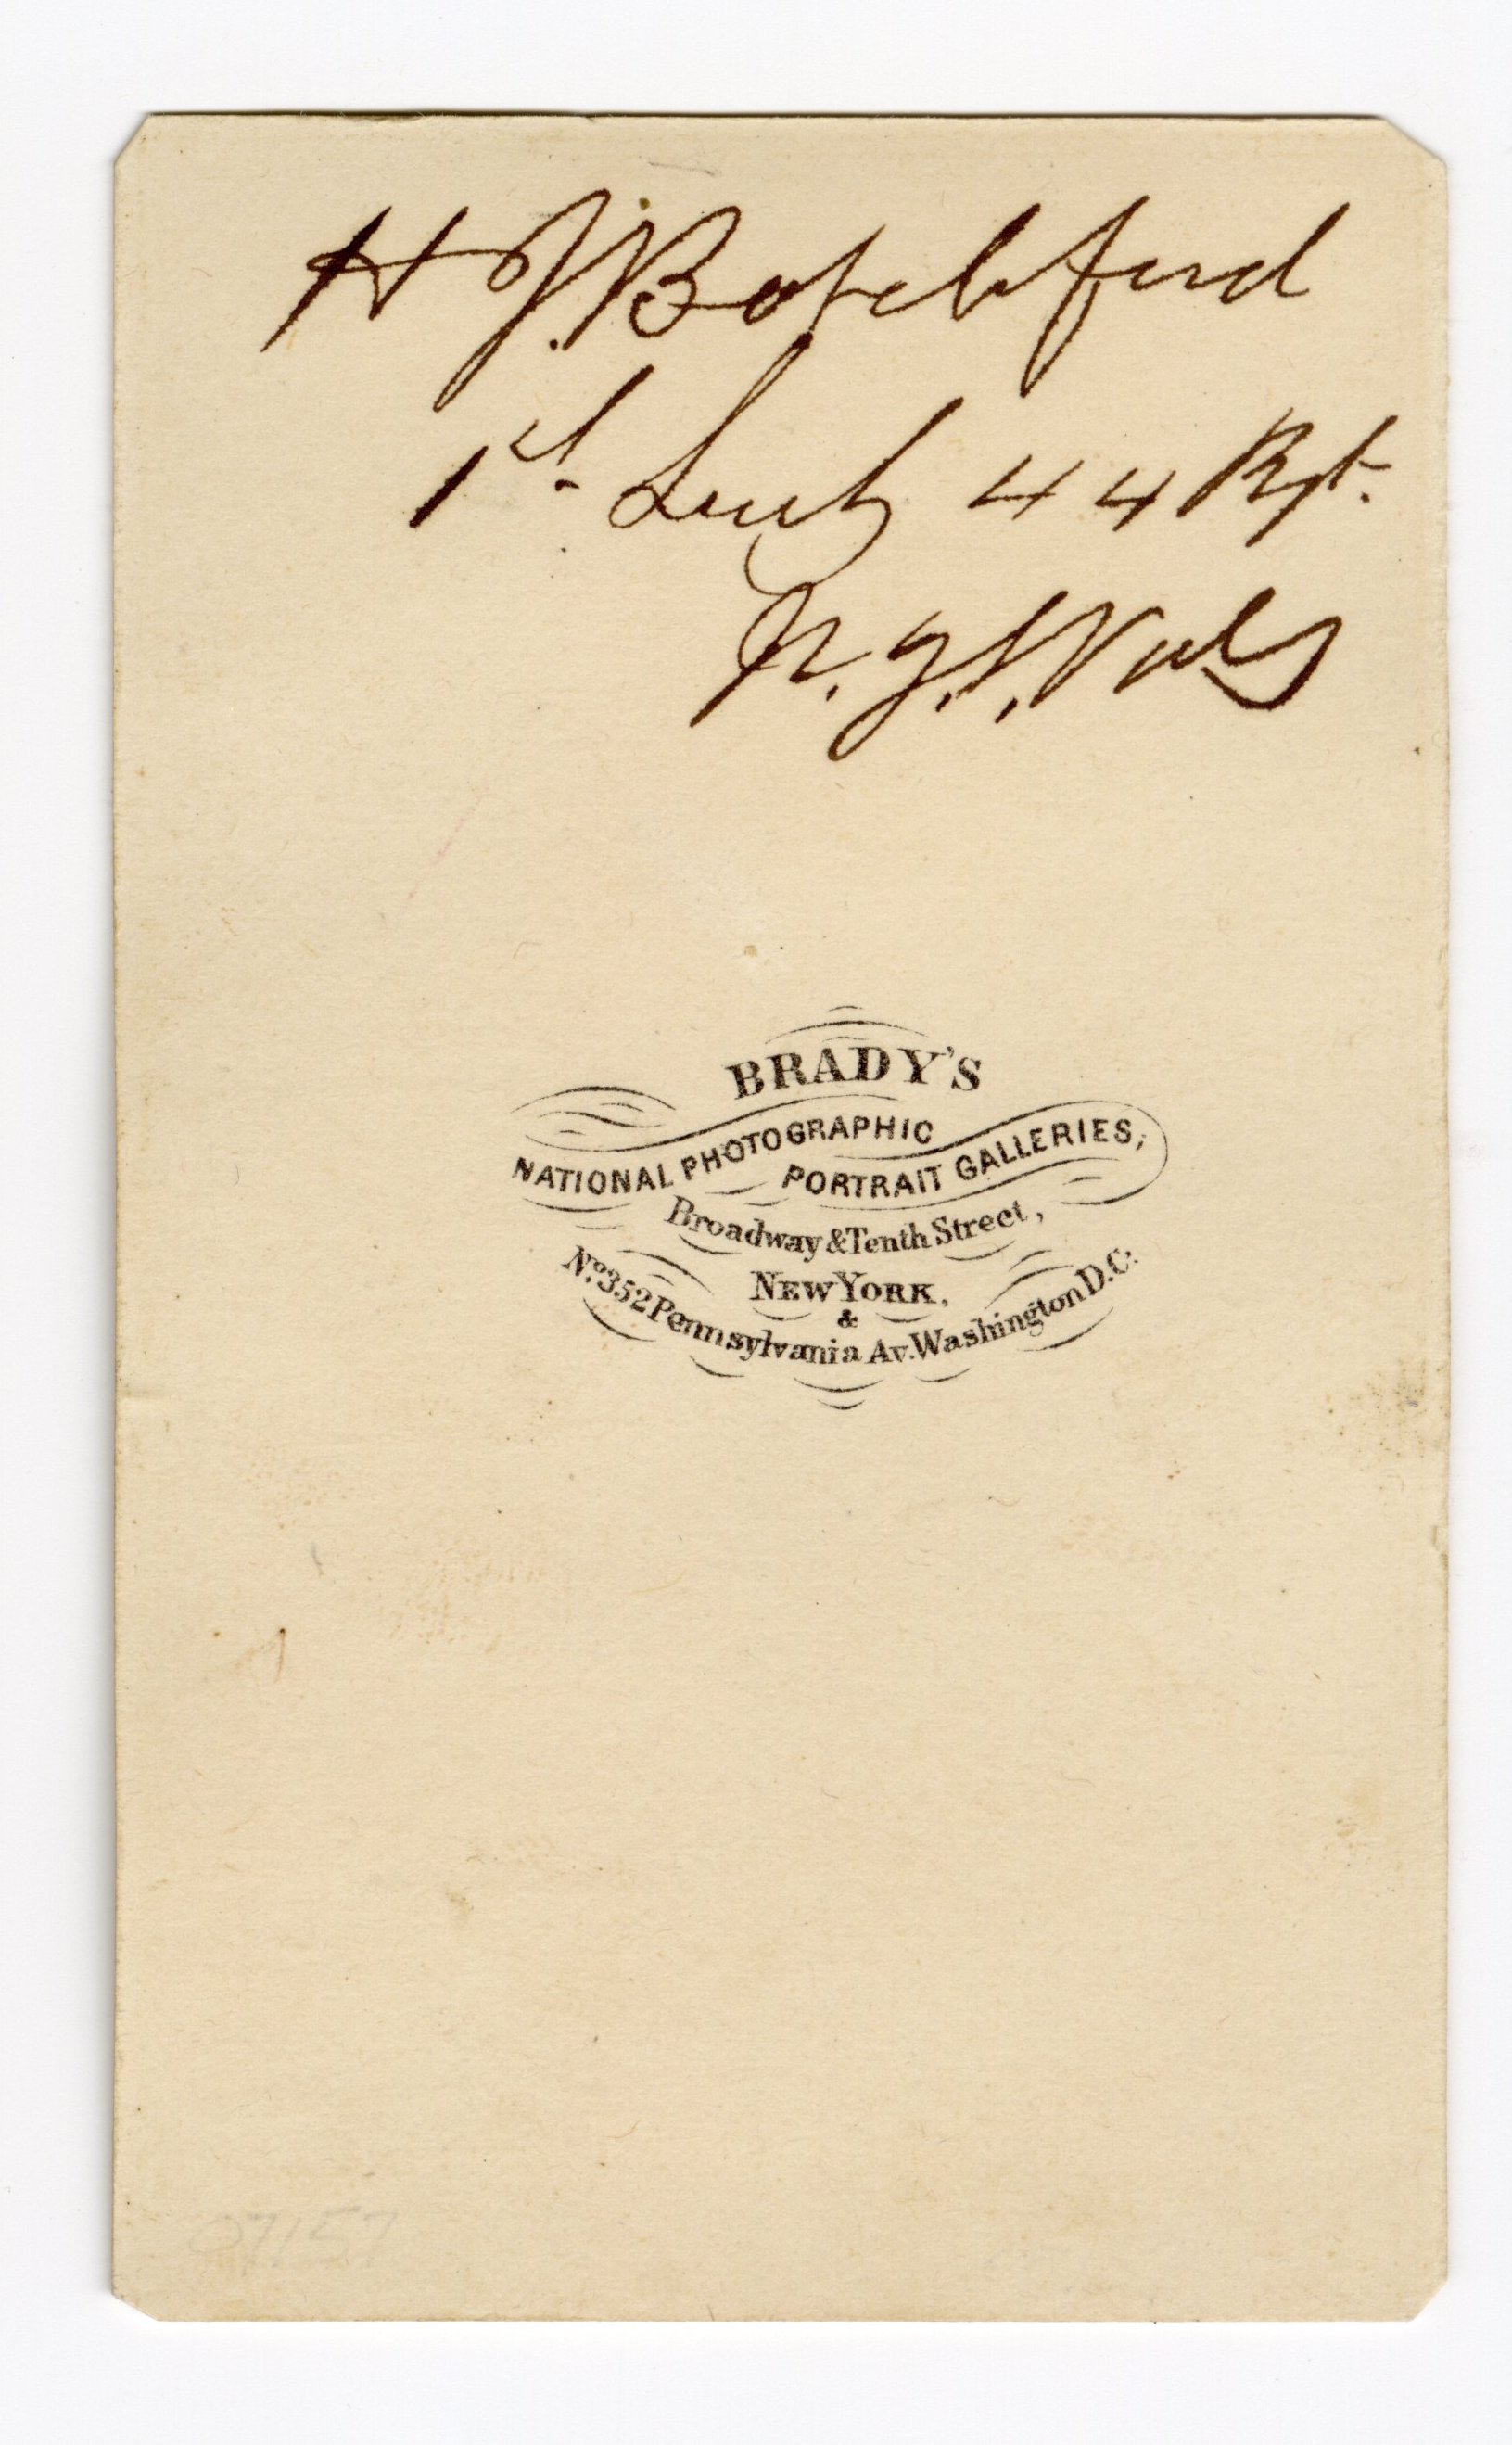 H J. Botchford
1st Lieut 44 Rgt.
N. Y. S. Vols
BRADY'S
NATIONAL PHOTOGRAPHIC
PORTRAIT GALLERIES,
Broadway & Tenth Street,
NEW YORK,
&
No. 352 Pennsylvania Av. Washington D.C.
07157